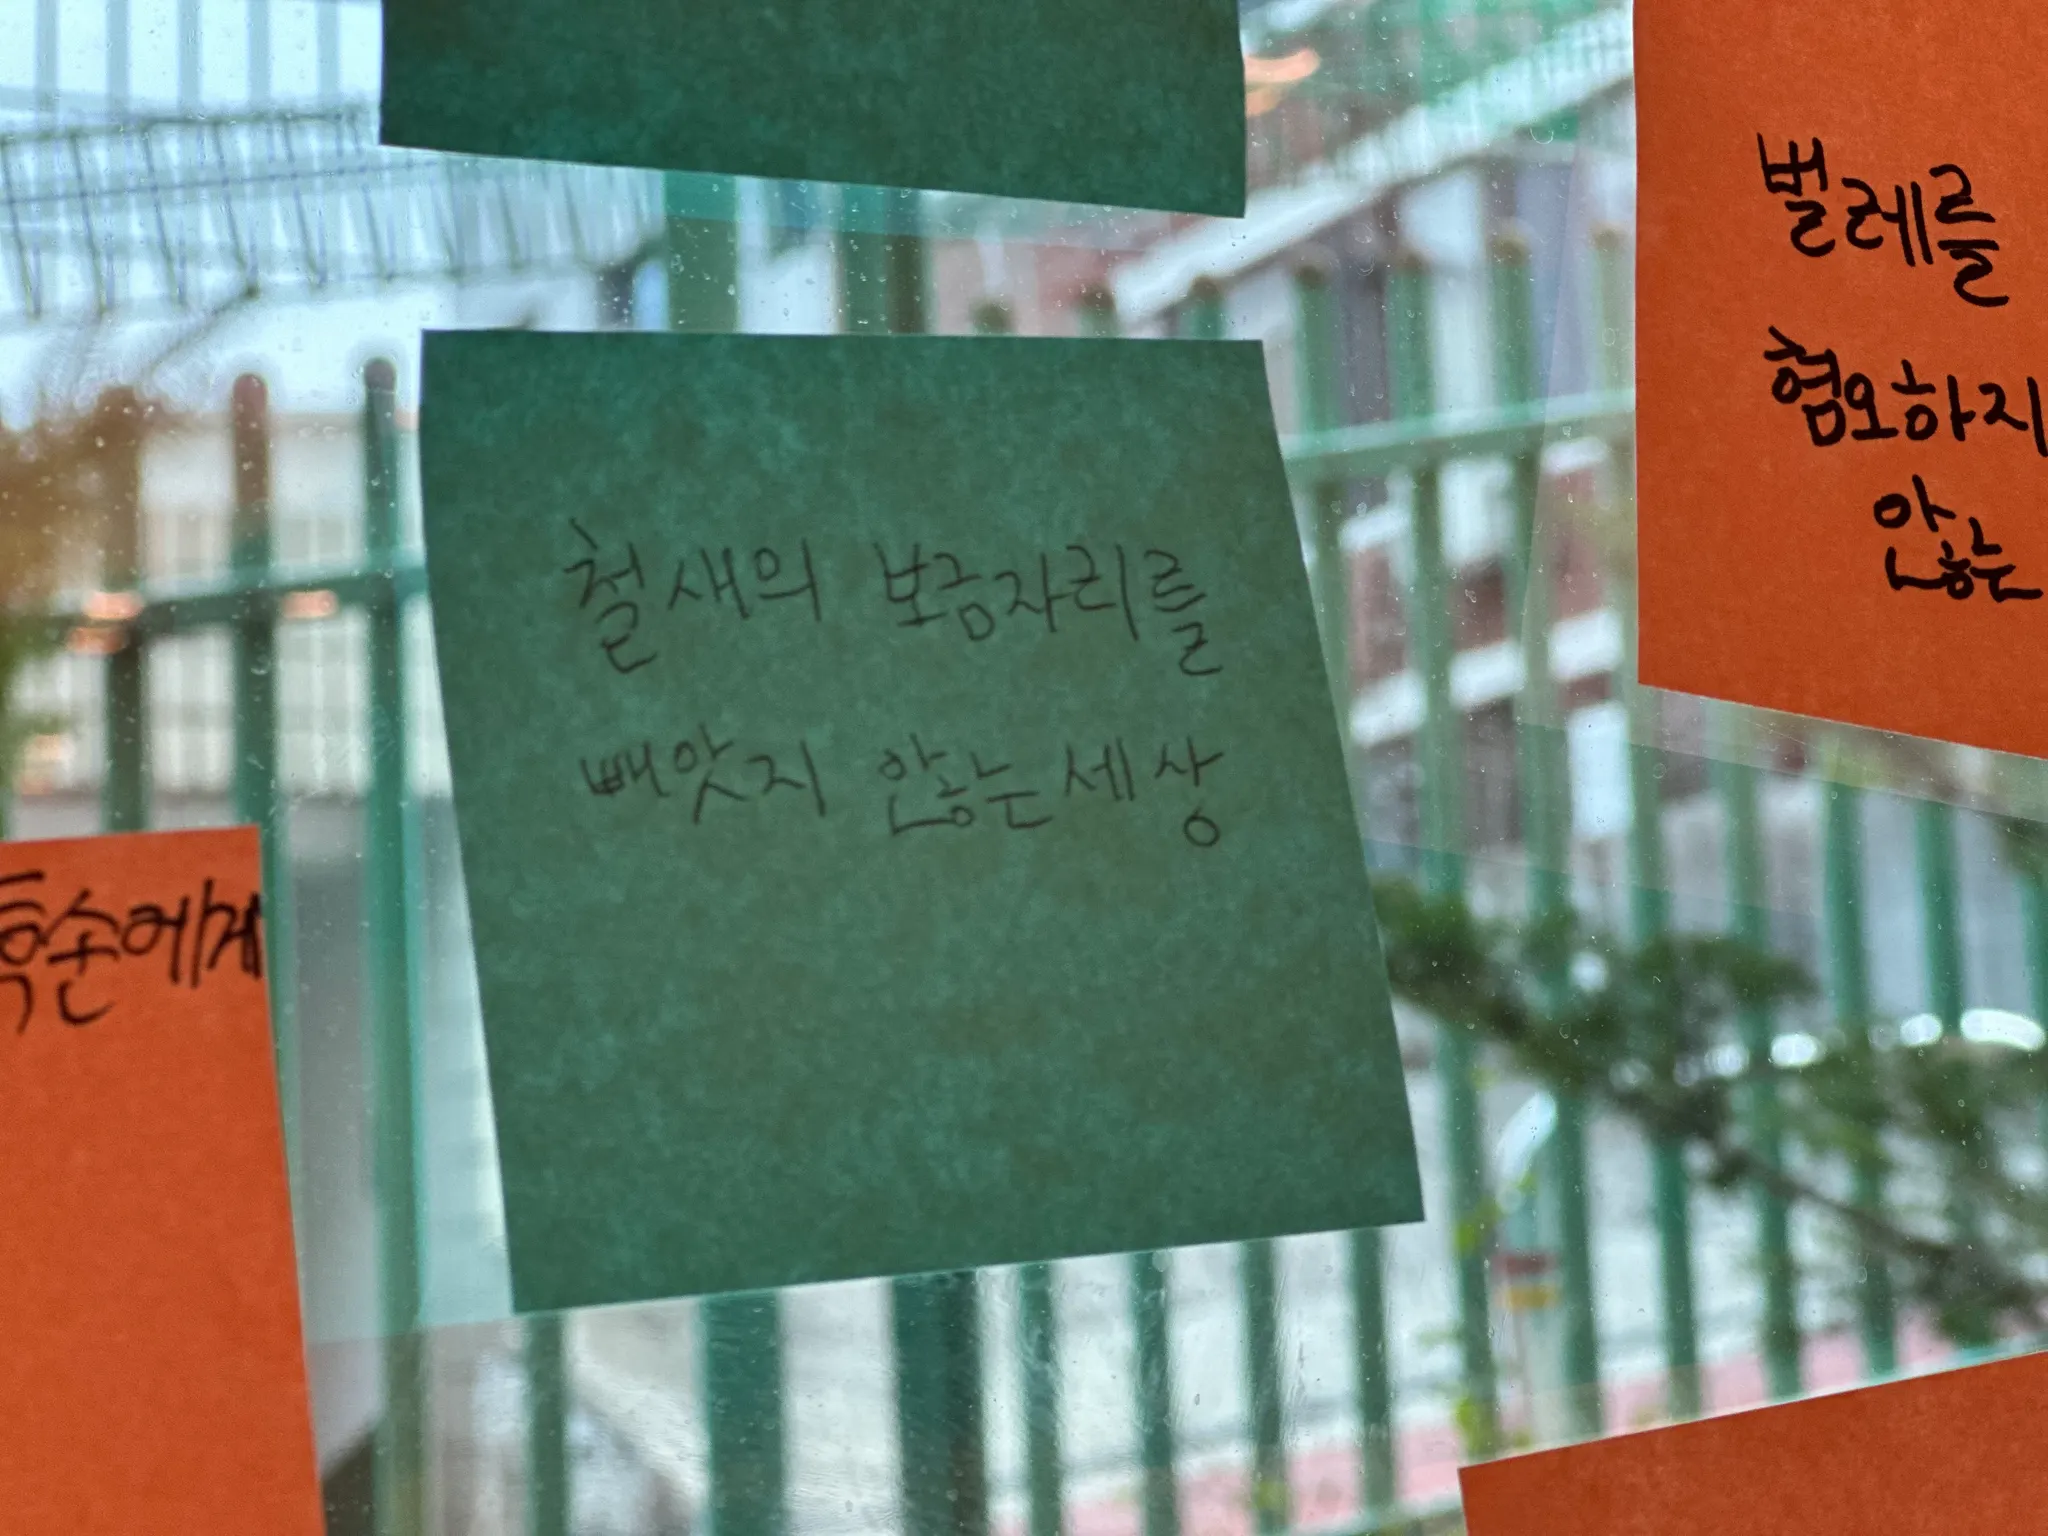 철새의 보금자리를
빼앗지 않는 세상
벌레를
혐오하지
않는